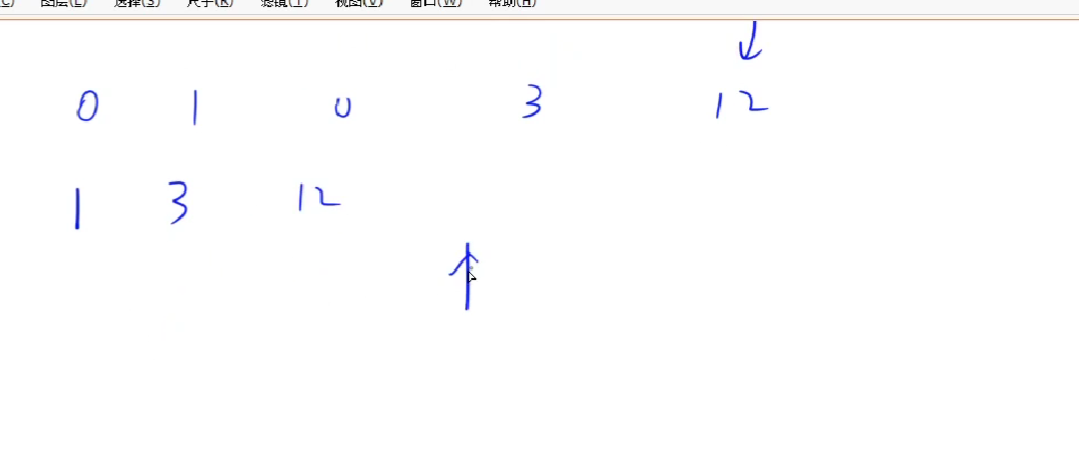 图层(L) 选择(S) 尺寸(R) 滤镜(T) 视图(V) 窗口(W) 帮助(H)
0 1 0 3 12
1 3 12